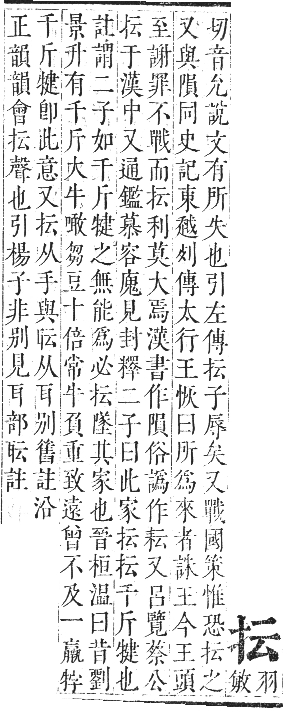 抎
羽
敏
切音允說文有所失也引左傳抎子辱矣又戰國策惟恐抎之
又與隕同史記東越列傳太行王恢曰所爲來者誅王今王頭
至謝罪不戰而抎利莫大焉漢書作隕俗譌作耘又呂覽蔡公
抎于漢中又通鑑慕容廆見封釋二子曰此家抎抎千斤犍也
註謂二子如千斤犍之無能爲必抎墜其家也晉桓溫曰昔劉
景升有千斤大牛噉芻豆十倍常牛負重致遠曾不及一羸牸
千斤犍卽此意又抎从手與耺从耳別舊註沿
正韻韻會抎聲也引楊子非別見耳部耺註